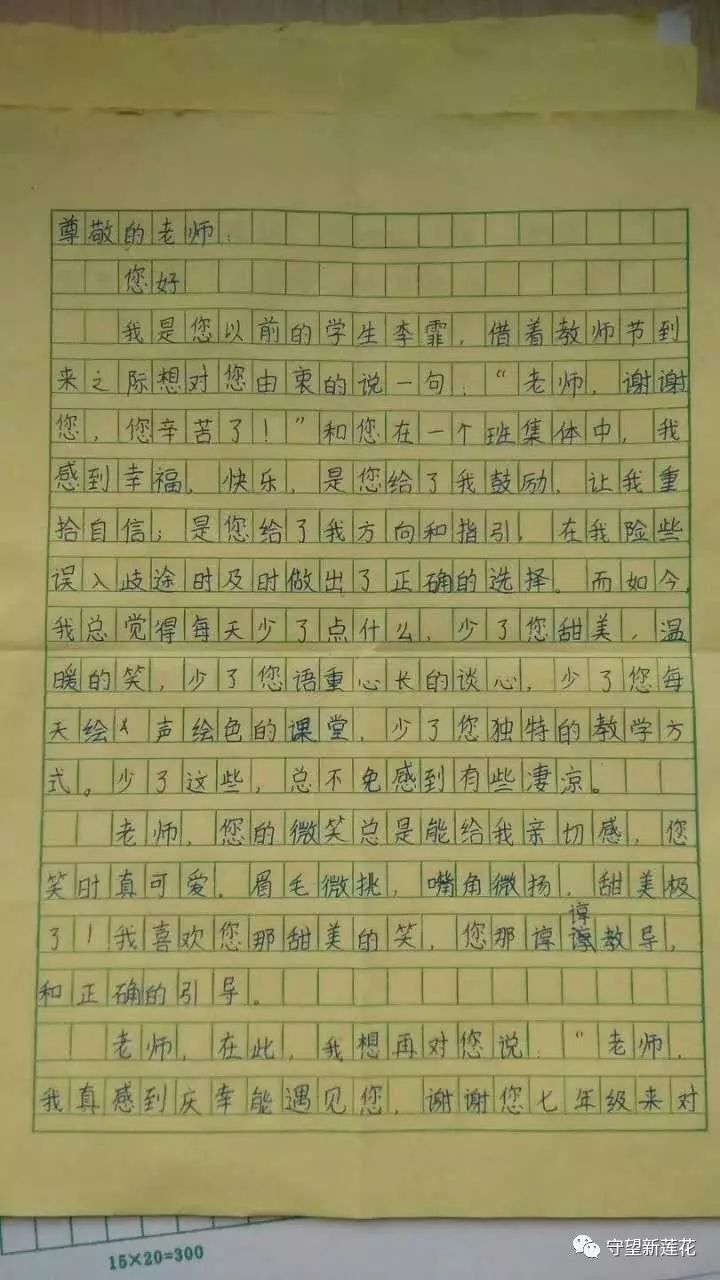 尊敬的老师：
您好
我是您以前的学生李霏，借着教师节到
来之际想对您由衷的说一句：“老师，谢谢
您，您辛苦了！”和您在一个班集体中，我
感到幸福，快乐，是您给了我鼓励，让我重
拾自信；是您给了我方向和指引，在我险些
误入歧途时及时做出了正确的选择。而如今，
我总觉得每天少了点什么，少了您甜美，温
暖的笑，少了您语重心长的谈心，少了您每
天绘声绘色的课堂，少了您独特的教学方
式。少了这些，总不免感到有些凄凉。
老师，您的微笑总是能给我亲切感，您
笑时真可爱。眉毛微挑，嘴角微扬，甜美极
了！我喜欢您那甜美的笑，您那谆谆教导，
和正确的引导。
老师，在此，我想再对您说：“老师，
我真感到庆幸能遇见您，谢谢您七年级来对
15×20=300
守望新莲花